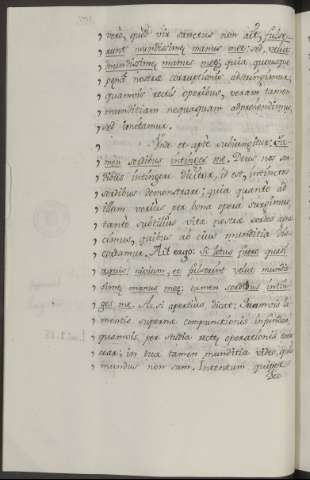 vero, quod vir sanctus non ait, fulse-
runt mundissimę manus meę: sed, velut
mundissimę manus meę; quia quousque
pęnâ nostrę corruptionis abstringimur,
quamvis rectis operibus, veram tamen
munditiam nequaquam adprehendimus,
sed imitamur.
Unde et apte subiungitur: Ta-
men sordibus intinges me. Deus nos sor-
didis intingere dicitur, id est, intinctos
sordibus demonstrare; quia quanto ad
illum verius per bona opera surgimus,
tanto subtilius vitę nostrę sordes agnos-
cimus, quibus ab eius munditia dis-
cordamus. Ait ergo: Si lotus fuero quasi
aquis nivium, et fulserint velut mundis-
simę manus meę: tamen sordibus intin-
ges me. Ac si apertius dicat: Quamvis la-
mentis supernę compunctionis infundar,
quamvis per studia rectę operationis exer-
cear; in tua tamen munditia video, quia
mundus non sum. Intentum quippe